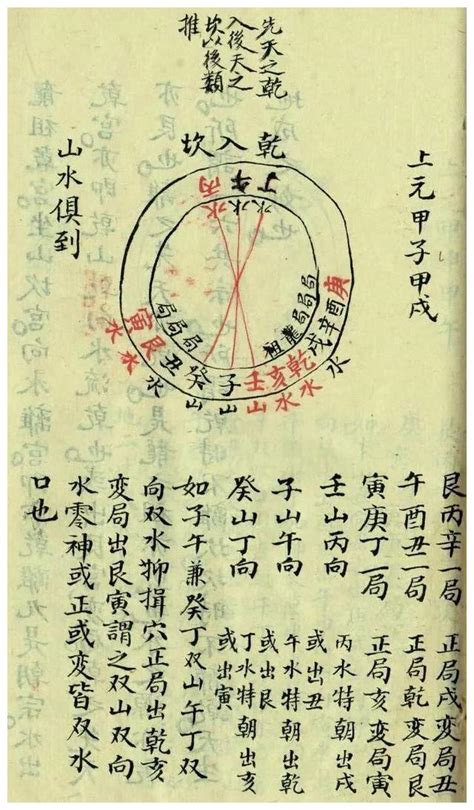 先天之乾
入後天之
坎以後類
推
乾入坎
上元甲子甲戌
山水俱到
丙午丁
水水水
庚酉辛戌
乾亥壬
水水山
水
子山
癸山
丑艮寅
水水水
局局局
祖龍局局局
艮丙辛一局 正局戌变局丑
午酉丑一局 正局乾变局艮
寅庚丁一局 正局亥变局寅
壬山丙向 丙水特朝出戌
或出丑
子山午向 午水特朝出乾
或出艮
癸山丁向 丁水特朝出亥
或出寅
如子午兼癸丁双山午丁双
向双水狮揖穴正局出乾亥
变局出艮寅謂之双山双向
水零神或正或变皆双水
口也